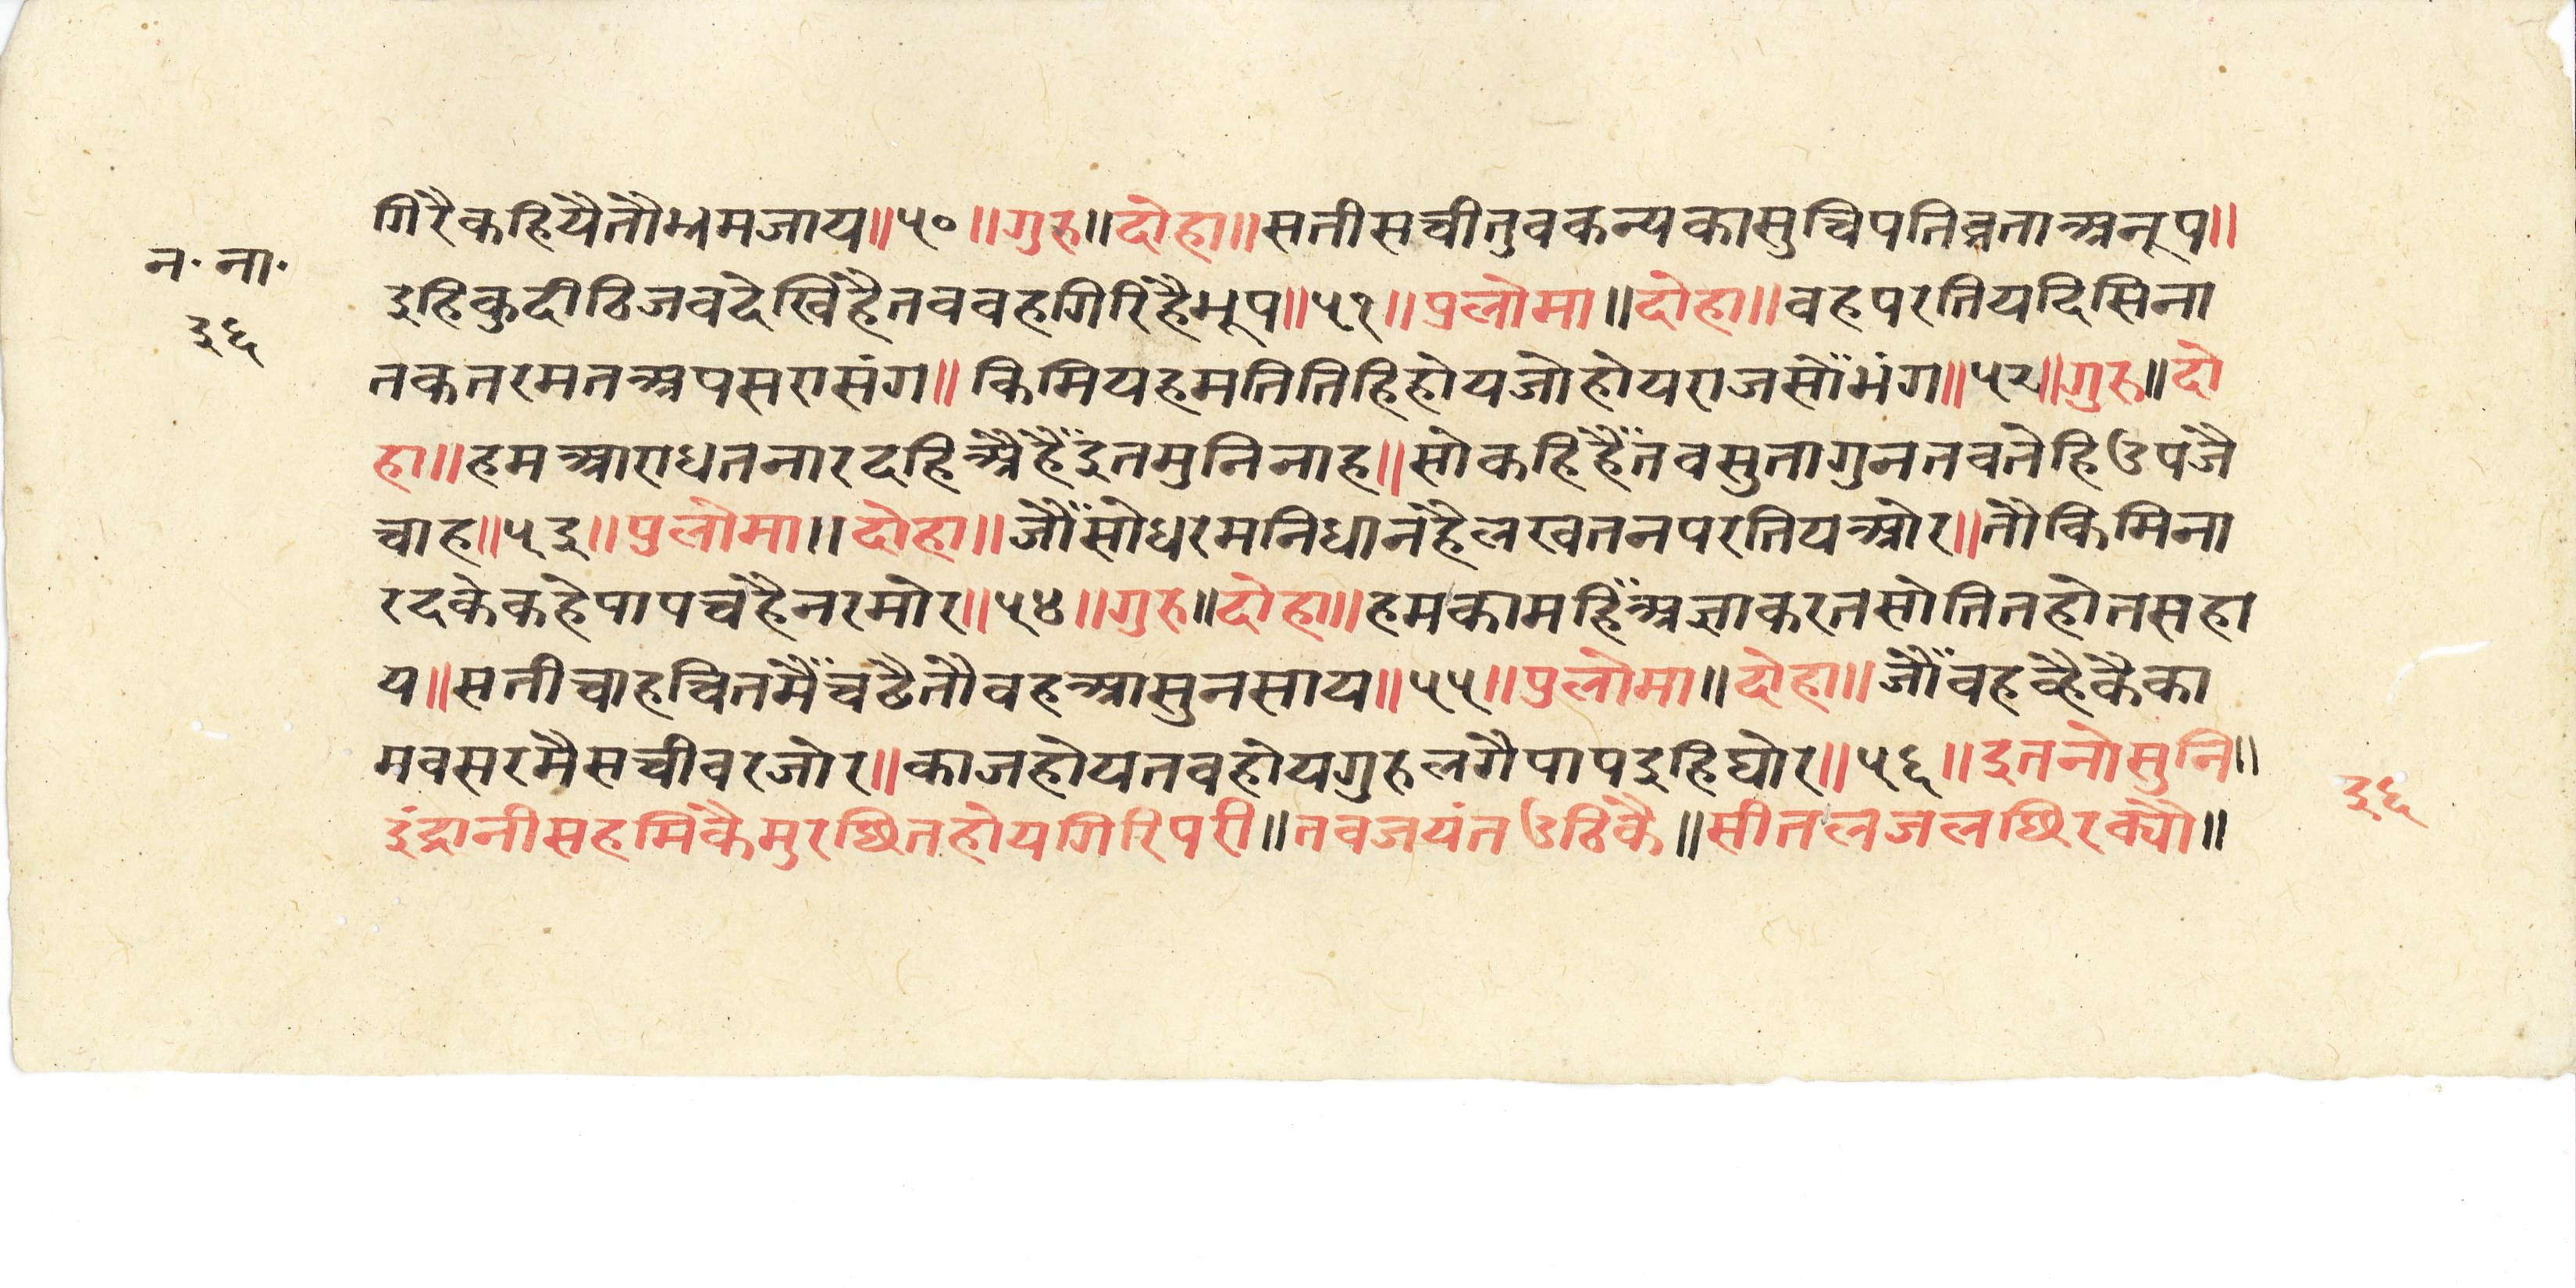 गिरैकहियैतौभ्रमजाय॥५०॥गुरु॥दोहा॥सतीसचीतुवकन्यकासुचिपतिव्रताअनूप॥
न॰ना॰
इहिकुदीठिजवदेखिहैतववहगिरिहैभूप॥५१॥पुलोमा॥दोहा॥वहपरतियदिसिना
३६
तकतरमतअपसरासंग॥किमियहमतितिहिहोयजोहोयराजसौंभंग॥५२॥गुरु॥दो
हा॥हमआराधतनारदहिअैहैंइतमुनिनाह॥सोकहिहैंतवसुतागुनतवतेहिउपजै
चाह॥५३॥पुलोमा॥दोहा॥जौंसोधरमनिधानहैलखतनपरतियओर॥तौकिमिना
रदकेकहेपापचहैनरमोर॥५४॥गुरु॥दोहा॥हमकामहिंअज्ञाकरतसोतितहोतसहा
य॥सतीचाहचितमैंचढैतौवहआसुनसाय॥५५॥पुलोमा॥दोहा॥जौंवहव्हैकैका
मवसरमैसचीवरजोर॥काजहोयतवहोयगुरुलगैपापइहिघोर॥५६॥इतनोसुनि॥
३६
इंद्रानीसहमिकैमुरछितहोयगिरिपरी॥तवजयंतउठिकै॥सीतलजलछिरक्यौ॥